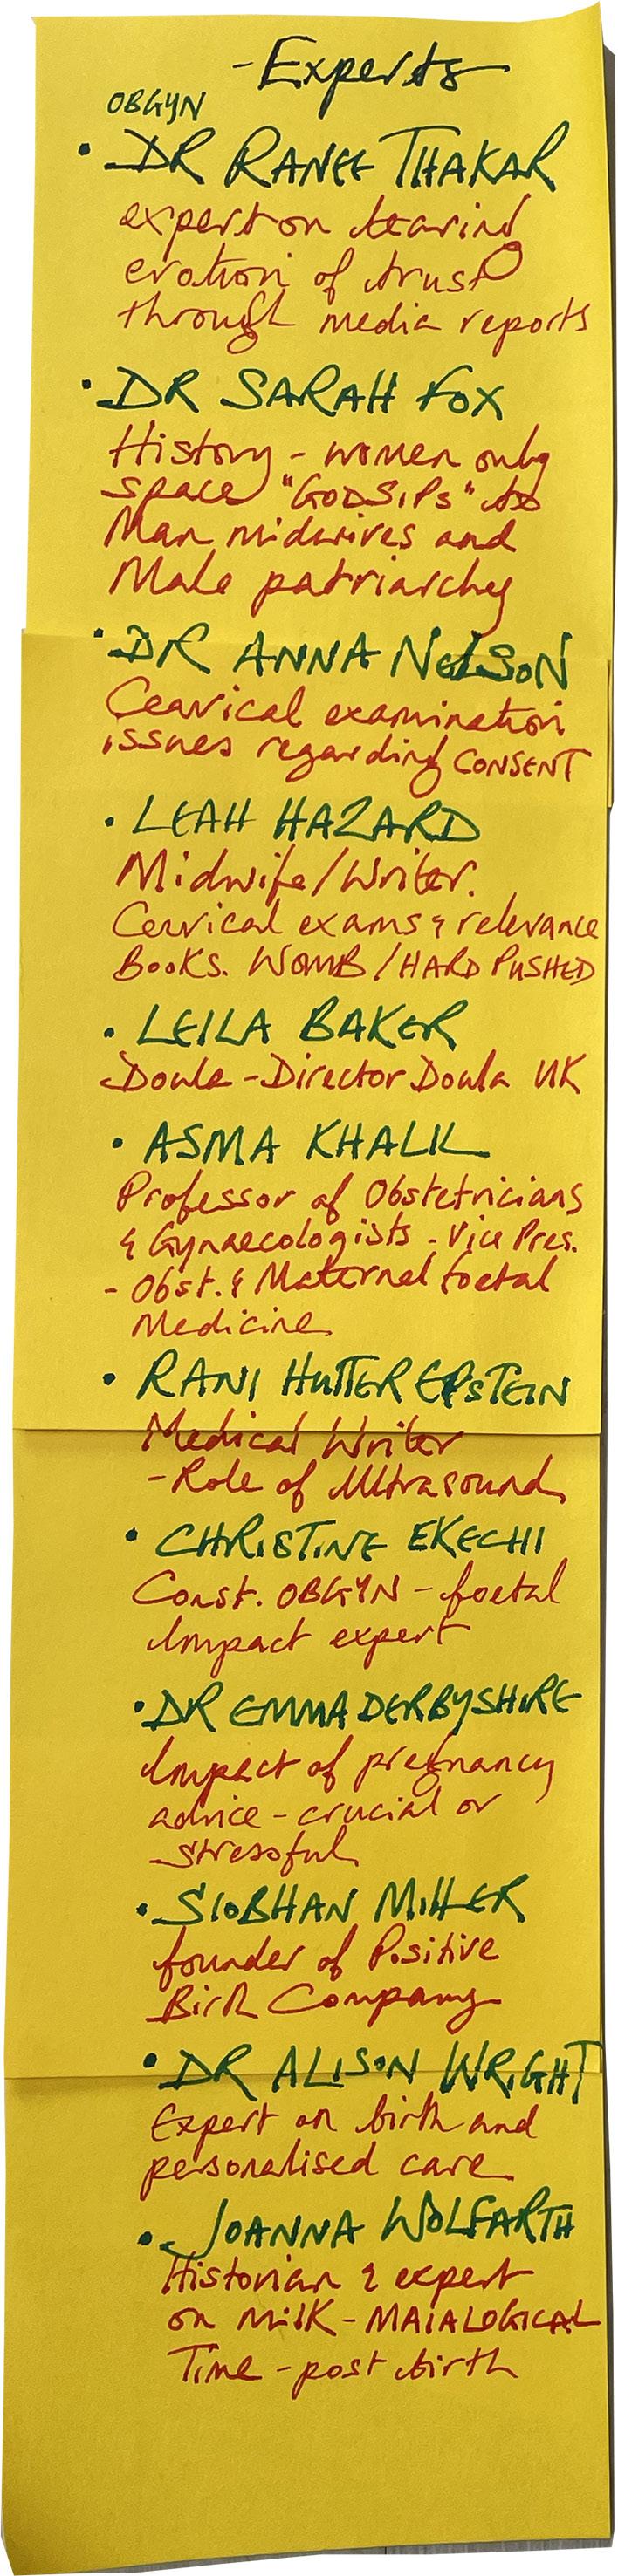 - Experts
OBGYN
• DR RANEE THAKAR
expert on tearing
erotion of trust
through media reports
• DR SARAH FOX
History - women only
space "GODSIPs" to
Man midwives and
Male patriarchy
• DR ANNA NELSON
Cearvical examination
issues regarding CONSENT
• LEAH HAZARD
Midwife/Writer.
Cervical exams & relevance
BOOKS. WOMB / HARD PUSHED
• LEILA BAKER
Doula - Director Doula UK
• ASMA KHALIL
Professor of Obstetricians
& Gynaecologists - Vice Pres.
- Obst. & Maternal foetal
Medicine
• RANI HUTTER EPSTEIN
Medical Writer
- Role of Ultrasound
• CHRISTINE EKECHI
Const. OBGYN - foetal
Impact expert
• DR EMMA DERBYSHIRE
Impact of pregnancy
advice - crucial or
stressful
• SIOBHAN MILLER
founder of Positive
Birth Company
• DR ALISON WRIGHT
Expert on birth and
personalised care
• JOANNA WOLFARTH
Historian & expert
on MILK - MAIALOGICAL
Time - post birth